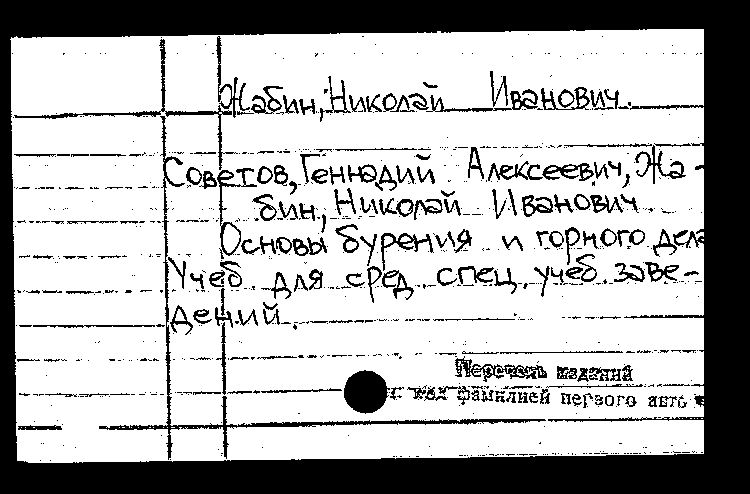 Жабин, Николай Иванович.
Советов, Геннадий Алексеевич, Жа-
бин, Николай Иванович.
Основы бурения и горного дела
Учеб. для сред. спец. учеб. заве-
дений.
Перечень изданий
см. под фамилией первого авто